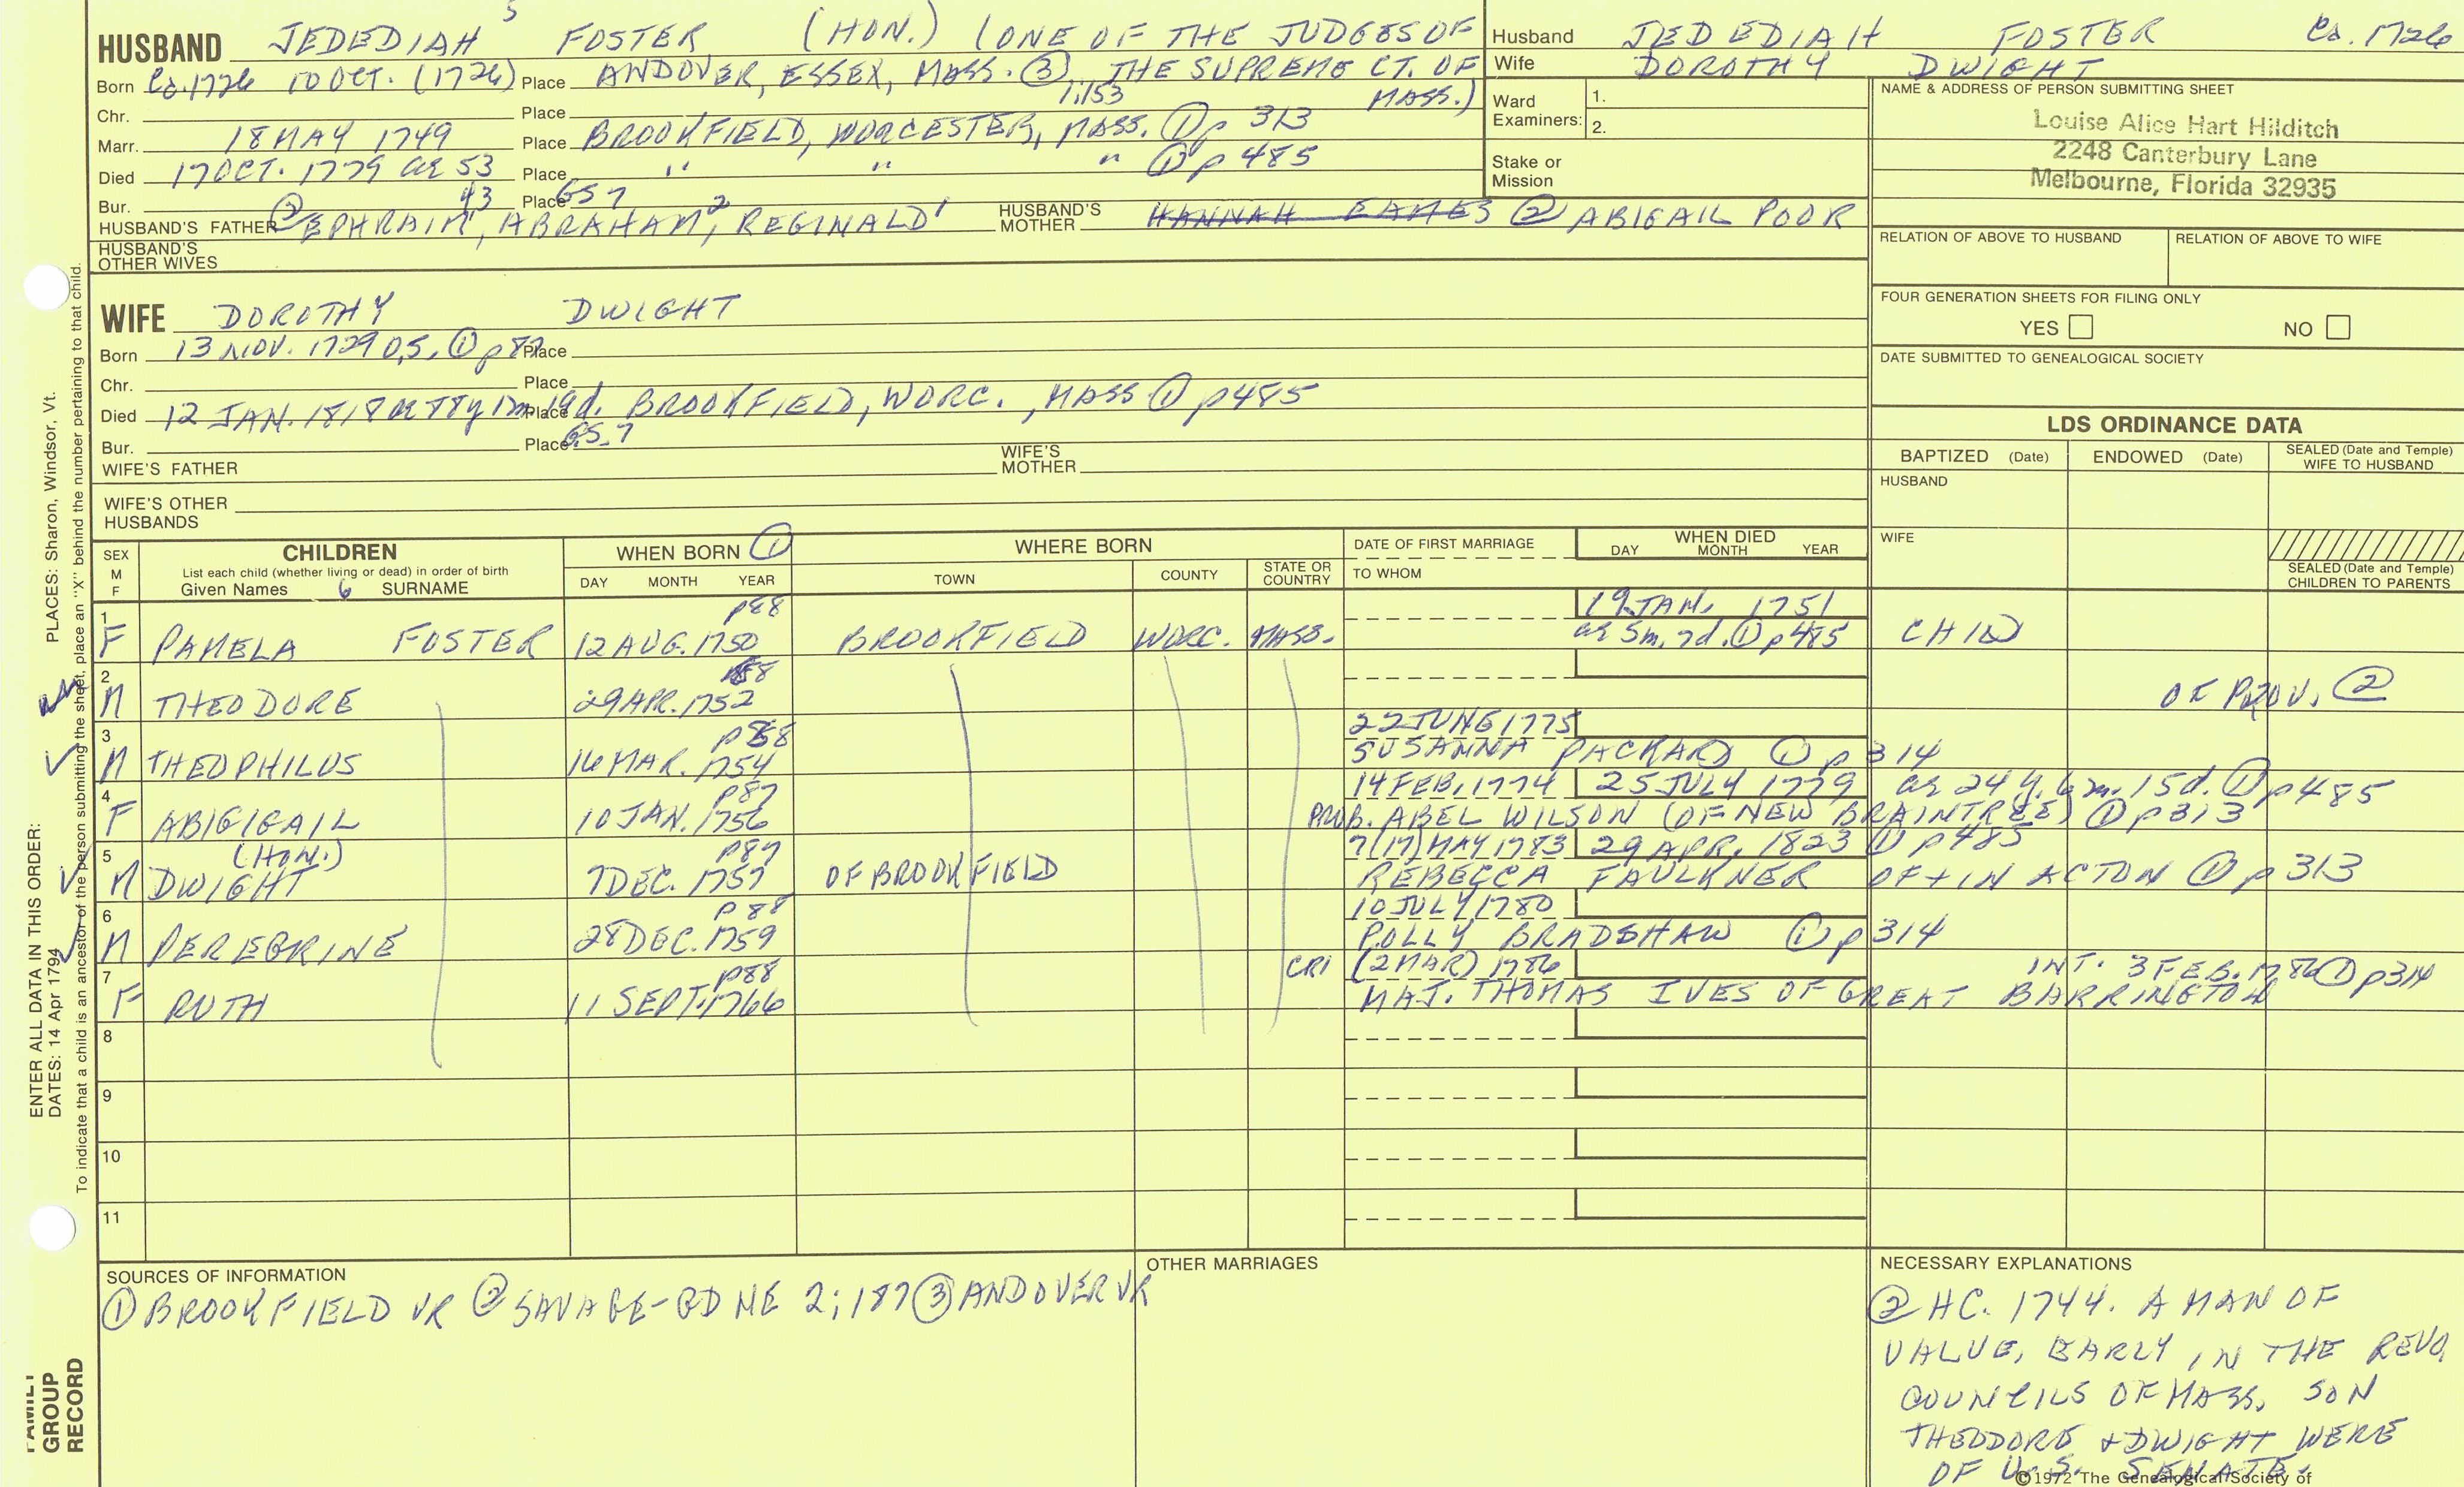 5
HUSBAND JEDEDIAH FOSTER (HON.) (ONE OF THE JUDGES OF
Born Ca. 1726 10 OCT. (1726) Place ANDOVER, ESSEX, MASS. ③ THE SUPREME CT. OF
1:153 MASS.)
Chr. Place
Marr. 18 MAY 1749 Place BROOKFIELD, WORCESTER, MASS. ① p 313
Died 17 OCT. 1779 ae 53 Place " " " ① p 485
Bur. Place GS 7
HUSBAND'S FATHER ② EPHRAIM, ABRAHAM2, REGINALD1 HUSBAND'S MOTHER HANNAH EAMES ② ABIGAIL POOR
HUSBAND'S
OTHER WIVES
Husband JEDEDIAH FOSTER Ca. 1726
Wife DOROTHY DWIGHT
Ward
Examiners: 1.
2.
Stake or
Mission
NAME & ADDRESS OF PERSON SUBMITTING SHEET
Louise Alice Hart Hilditch
2248 Canterbury Lane
Melbourne, Florida 32935
RELATION OF ABOVE TO HUSBAND RELATION OF ABOVE TO WIFE
FOUR GENERATION SHEETS FOR FILING ONLY
YES NO
DATE SUBMITTED TO GENEALOGICAL SOCIETY
WIFE DOROTHY DWIGHT
Born 13 NOV. 1729 O.S. ① p 87 Place
Chr. Place
Died 12 JAN. 1818 ae 88y 1m 19d. Place BROOKFIELD, WORC., MASS ① p 485
Bur. Place G.S. 7
WIFE'S FATHER WIFE'S MOTHER
WIFE'S OTHER
HUSBANDS
LDS ORDINANCE DATA
BAPTIZED (Date) ENDOWED (Date) SEALED (Date and Temple)
WIFE TO HUSBAND
HUSBAND
WIFE
SEALED (Date and Temple)
CHILDREN TO PARENTS
SEX
M
F
CHILDREN
List each child (whether living or dead) in order of birth
Given Names 6 SURNAME
WHEN BORN ①
DAY MONTH YEAR
WHERE BORN
TOWN COUNTY STATE OR COUNTRY
DATE OF FIRST MARRIAGE
TO WHOM
WHEN DIED
DAY MONTH YEAR
1 p88 19 JAN. 1751
F PAMELA FOSTER 12 AUG. 1750 BROOKFIELD WORC. MASS. ae 5m. 7d. ① p 485 CHILD
2 88
M THEODORE 29 APR. 1752 OF PROV. ②
3 p88 22 JUNE 1775
M THEOPHILUS 16 MAR. 1754 SUSANNA PACKARD ① p 314
4 p87 14 FEB. 1774 25 JULY 1779 ae 24 y. 6 m. 15 d. ① p 485
F ABIGIGAIL 10 JAN. 1756 PROB. ABEL WILSON (OF NEW BRAINTREE) ① p 313
5 (HON.) p87 7 (17) MAY 1783 29 APR. 1823 ① p 485
M DWIGHT 7 DEC. 1757 OF BROOKFIELD REBECCA FAULKNER OF + IN ACTON ① p 313
6 p 88 10 JULY 1780
M PEREGRINE 28 DEC. 1759 POLLY BRADSHAW ① p 314
7 p88 CRI (2 MAR) 1786 INT. 3 FEB. 1786 ① p314
F RUTH 11 SEPT. 1766 MAJ. THOMAS IVES OF GREAT BARRINGTON
8
9
10
11
SOURCES OF INFORMATION
① BROOKFIELD VR ② SAVAGE-GD NE 2; 187 ③ ANDOVER VR
OTHER MARRIAGES
NECESSARY EXPLANATIONS
② HC. 1744. A MAN OF
VALUE, EARLY IN THE REVO.
COUNCILS OF MASS. SON
THEODORE + DWIGHT WERE
OF U.S. SENATE.
©1972 The Genealogical Society of
PLACES: Sharon, Windsor, Vt.
ENTER ALL DATA IN THIS ORDER:
DATES: 14 Apr 1794
To indicate that a child is an ancestor of the person submitting the sheet, place an "X" behind the number pertaining to that child.
FAMILY
GROUP
RECORD